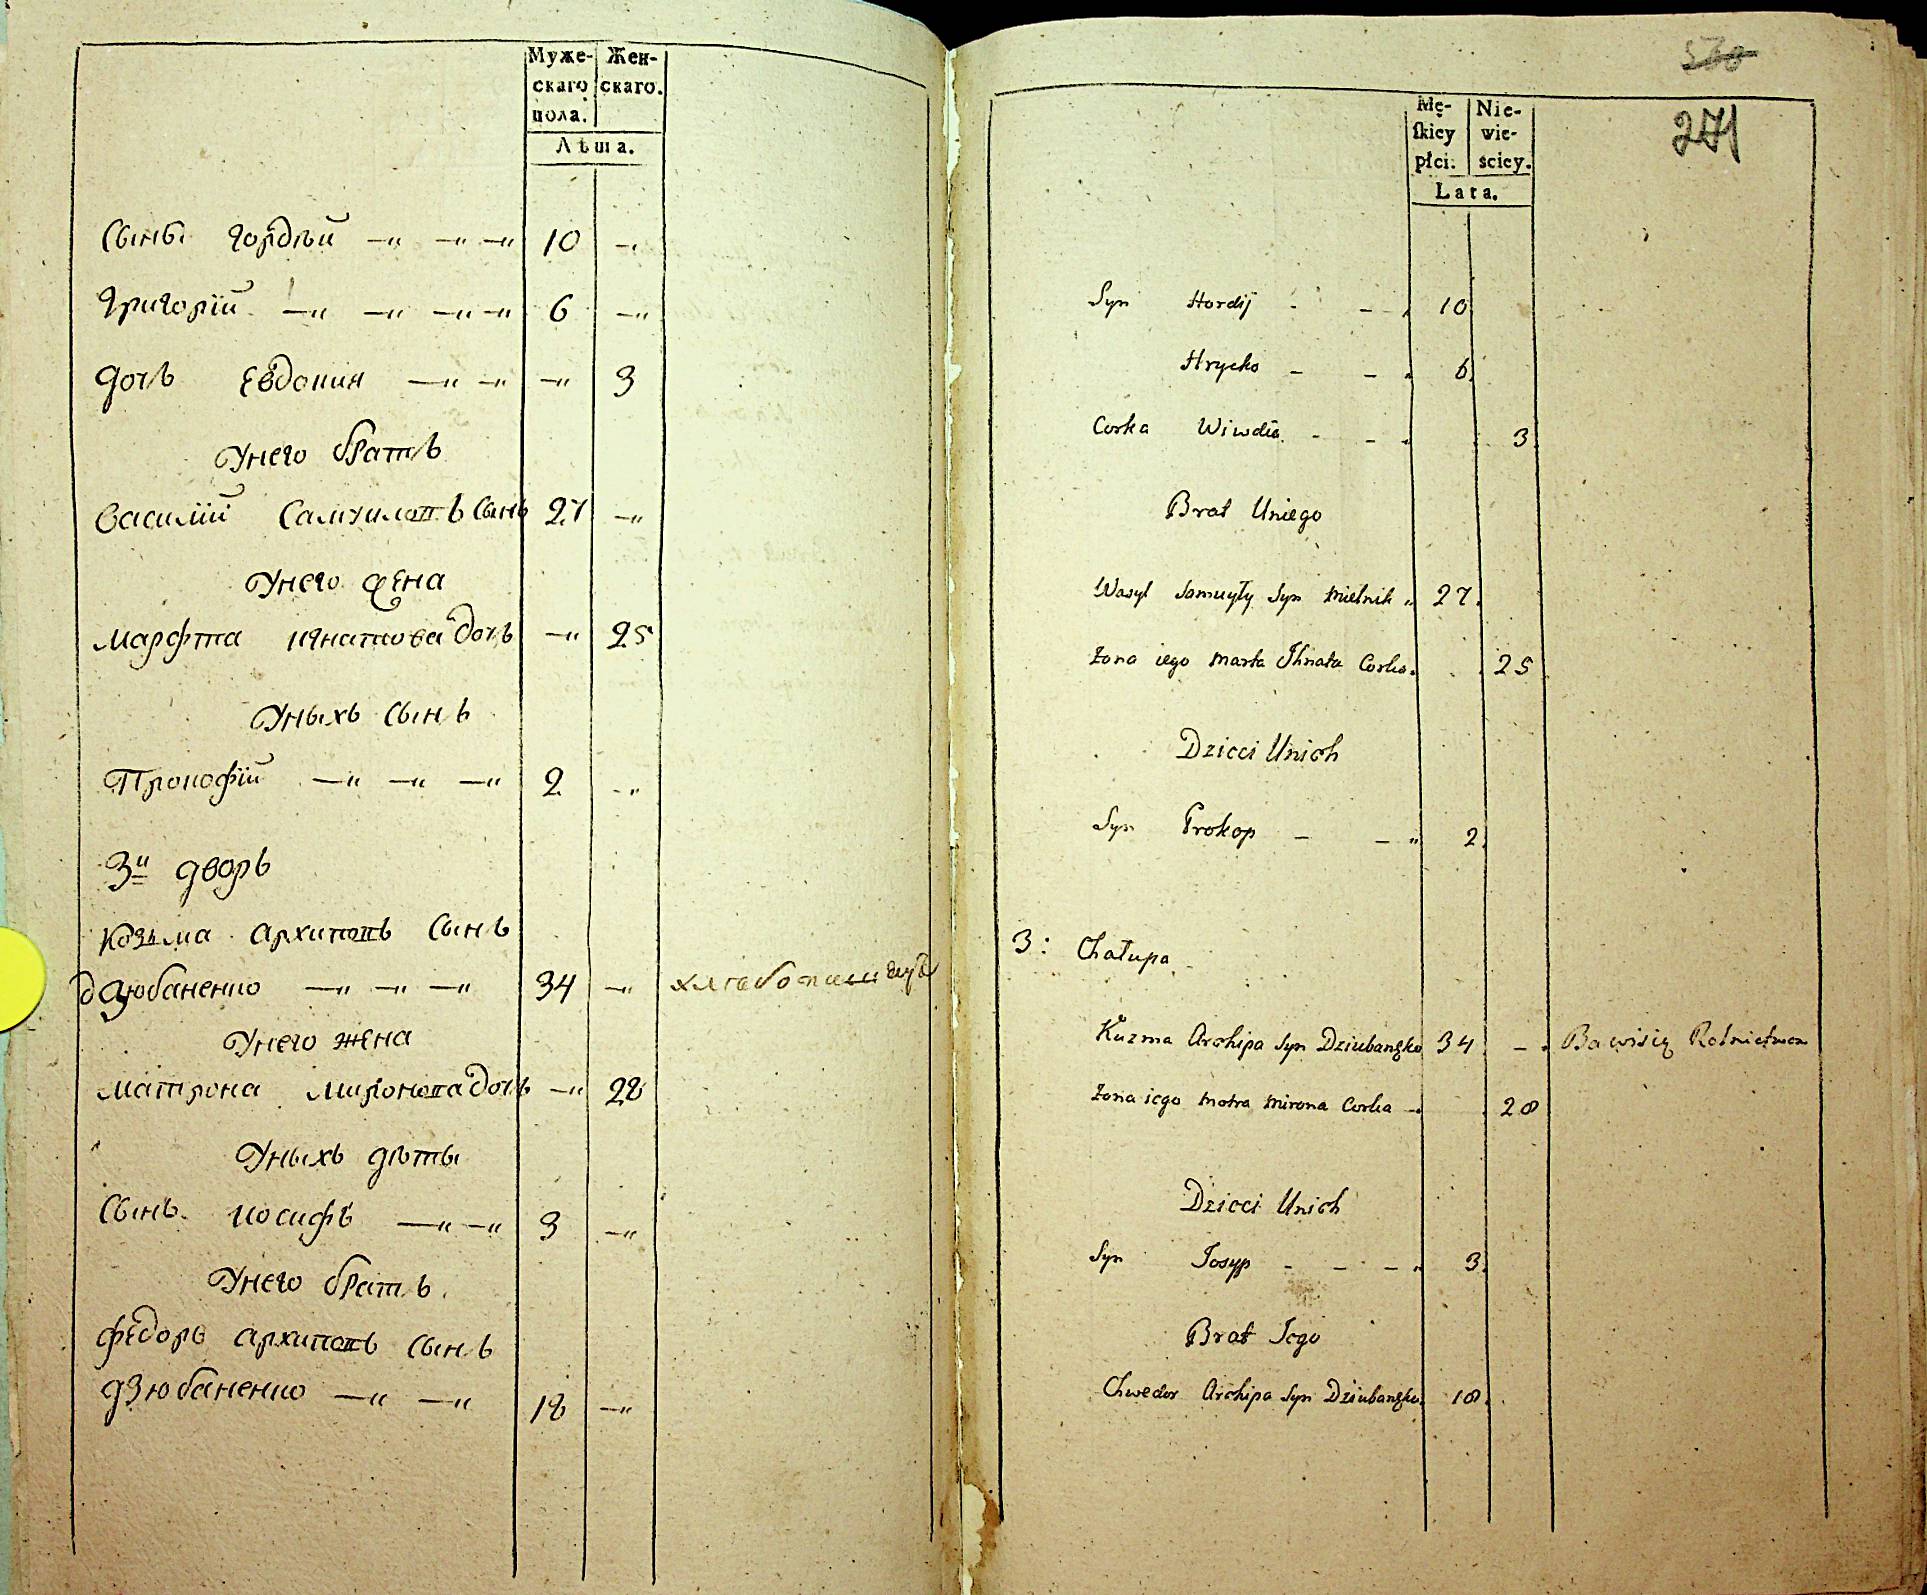 Муже-
скаго
пола.
Жен-
скаго.
Лѣта.
Сынъ Гордѣй —„ —„ —„ 10 —„
Григорїй —„ —„ —„ —„ 6 —„
дочь Евдокия —„ —„ —„ 3
Унего братъ
Василїй Самуиловъ Сынъ 27 —„
Унего жена
Марфта игнатова дочь —„ 25
Уныхъ сынъ
Прокофїй —„ —„ —„ 2 —„
3й дворъ
Козьма архиповъ Сынъ
дзюбаненко —„ —„ —„ 34 —„
Унего жена
матрона миронова дочь —„ 28
Уныхъ дѣты
Сынъ иосифъ —„ —„ 3 —„
Унего братъ
федоръ архиповъ сынъ
дзюбаненко —„ —„ 18 —„
578
271
Mę-
skiey
płci.
Nie-
wie-
sciey.
Lata.
Syn Hordij - - - 10
Hrycko - - - 6
Corka Wiwdia - - - 3
Brat Uniego
Wasyl Samuyły Syn Mielnik „ 27
Zona iego Marta Ihnata Corka 25
Dzieci Unich
Syn Prokop - - „ 2
3: Chałupa
Kuzma Archipa Syn Dziubanęko 34 - Bawisię Rolnictwem
Zona iego Motra Mirona Corka - 28
Dzieci Unich
Syn Josyp - - - „ 3
Brat Iego
Chwedor Archipa Syn Dziubanęko 18